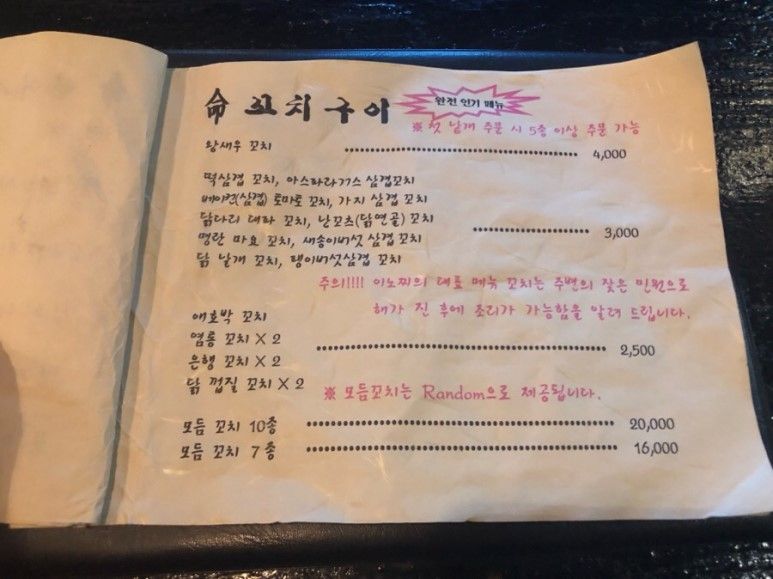 命 꼬치구이 완전 인기 메뉴
※ 첫 낱개 주문 시 5종 이상 주문 가능
왕새우 꼬치 4,000
떡삼겹 꼬치, 아스파라거스 삼겹꼬치
베이컨(삼겹) 토마토 꼬치, 가지 삼겹 꼬치
닭다리 대파 꼬치, 난꼬츠(닭연골) 꼬치 3,000
명란 마요 꼬치, 새송이버섯 삼겹꼬치
닭 날개 꼬치, 팽이버섯삼겹 꼬치
주의!!!! 이노찌의 대표 메뉴 꼬치는 주변의 잦은 민원으로
해가 진 후에 조리가 가능함을 알려 드립니다.
애호박 꼬치
염통 꼬치 X 2 2,500
은행 꼬치 X 2
닭 껍질 꼬치 X 2
※ 모듬꼬치는 Random으로 제공됩니다.
모듬 꼬치 10종 20,000
모듬 꼬치 7종 16,000